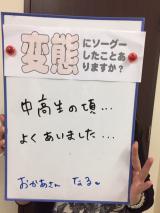 変態にソーグー
したことあ
りますか？
中高生の頃…
よくあいました…
おかあさん なる